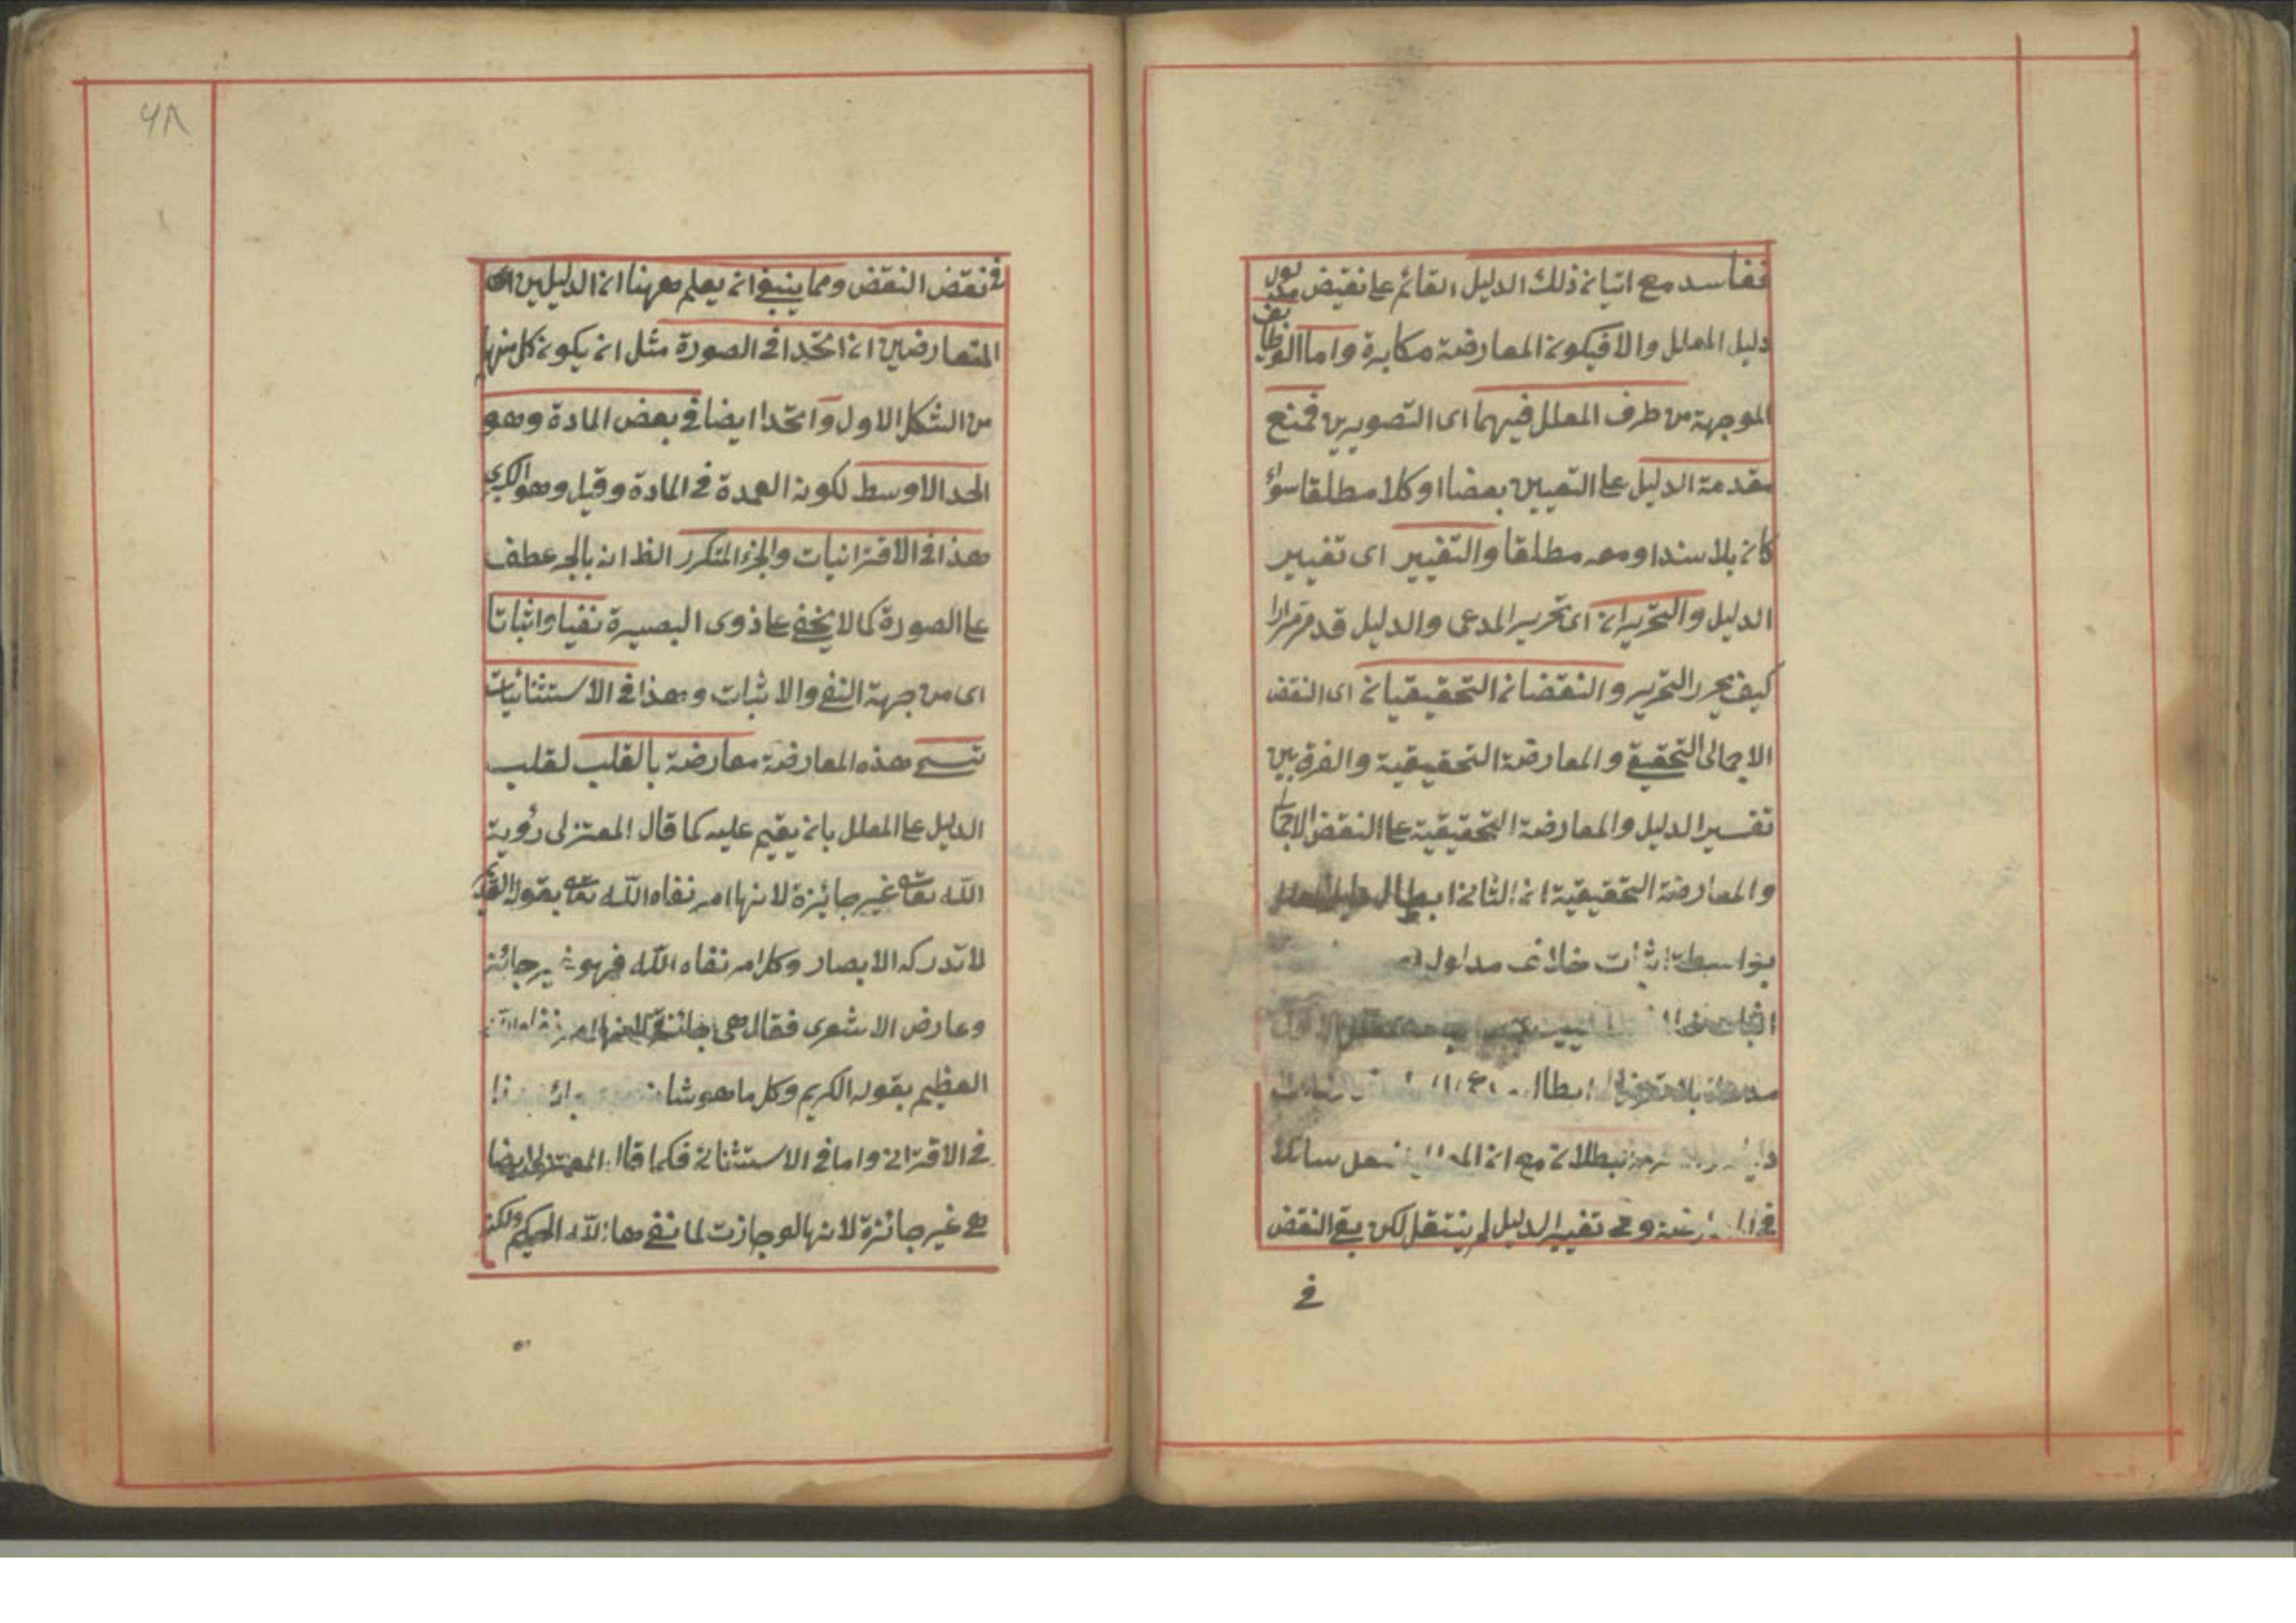 ففاسد مع اتيان ذلك الدليل القائم على نقيض مدلول
دليل المعلل والا فيكون المعارضة مكابرة واما الوظائف
الموجهة من طرف المعلل فيهما اى التصويرين فمنع
مقدمة الدليل على التعيين بعضا او كلا مطلقا سواء
كان بلا سند او معه مطلقا والتغيير اى تغيير
الدليل والتحريران اى تحرير المدعى والدليل قد مر مرارا
كيف يحرر التحرير والنقضان التحقيقيان اى النقض
الاجمالى التحقيقى والمعارضة التحقيقية والفرق بين
تفسير الدليل والمعارضة التحقيقية على النقض الاجمالى
والمعارضة التحقيقية ان الثانى ابطال
بواسطة اثبات خلاف مدلوله
اثبات
ابطال
بطلانه مع ان سائلا
فى وفى تغيير الدليل لم ينتقل لكن بقى النقض
فى
٦٨
فى نقض النقض ومما ينبغى ان يعلم ههنا ان الدليلين
المتعارضين ان اتحدا فى الصورة مثل ان يكون كل منهما
من الشكل الاول واتحدا ايضا فى بعض المادة وهو
الحد الاوسط لكونه العمدة فى المادة وقيل وهو الكبرى
هذا فى الاقترانيات والجزء المتكرر الظ انه بالجر عطف
على الصورة كما لا يخفى على ذوى البصيرة نفيا واثباتا
اى من جهة النفى والاثبات وهذا فى الاستثنائيات
تسمى هذه المعارضة معارضة بالقلب لقلب
الدليل على المعلل بان يقيم عليه كما قال المعتزلى رؤية
الله تعا غير جائزة لانها امر نفاه الله تعا بقوله القديم
لا تدركه الابصار وكل امر نفاه الله فهو غير جائز
وعارض الاشعرى فقال هى جائزة لانها امر نفاه الله
العظيم بقوله الكريم وكل ما هو شانه
فى الاقترانى واما فى الاستثنائى فكما قال المعتزلى ايضا
هى غير جائزة لانها لو جازت لما نفى ها الله الحكيم ولكنه